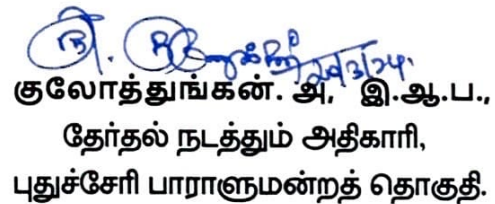 20/3/24
குலோத்துங்கன். அ, இ.ஆ.ப.,
தேர்தல் நடத்தும் அதிகாரி,
புதுச்சேரி பாராளுமன்றத் தொகுதி.